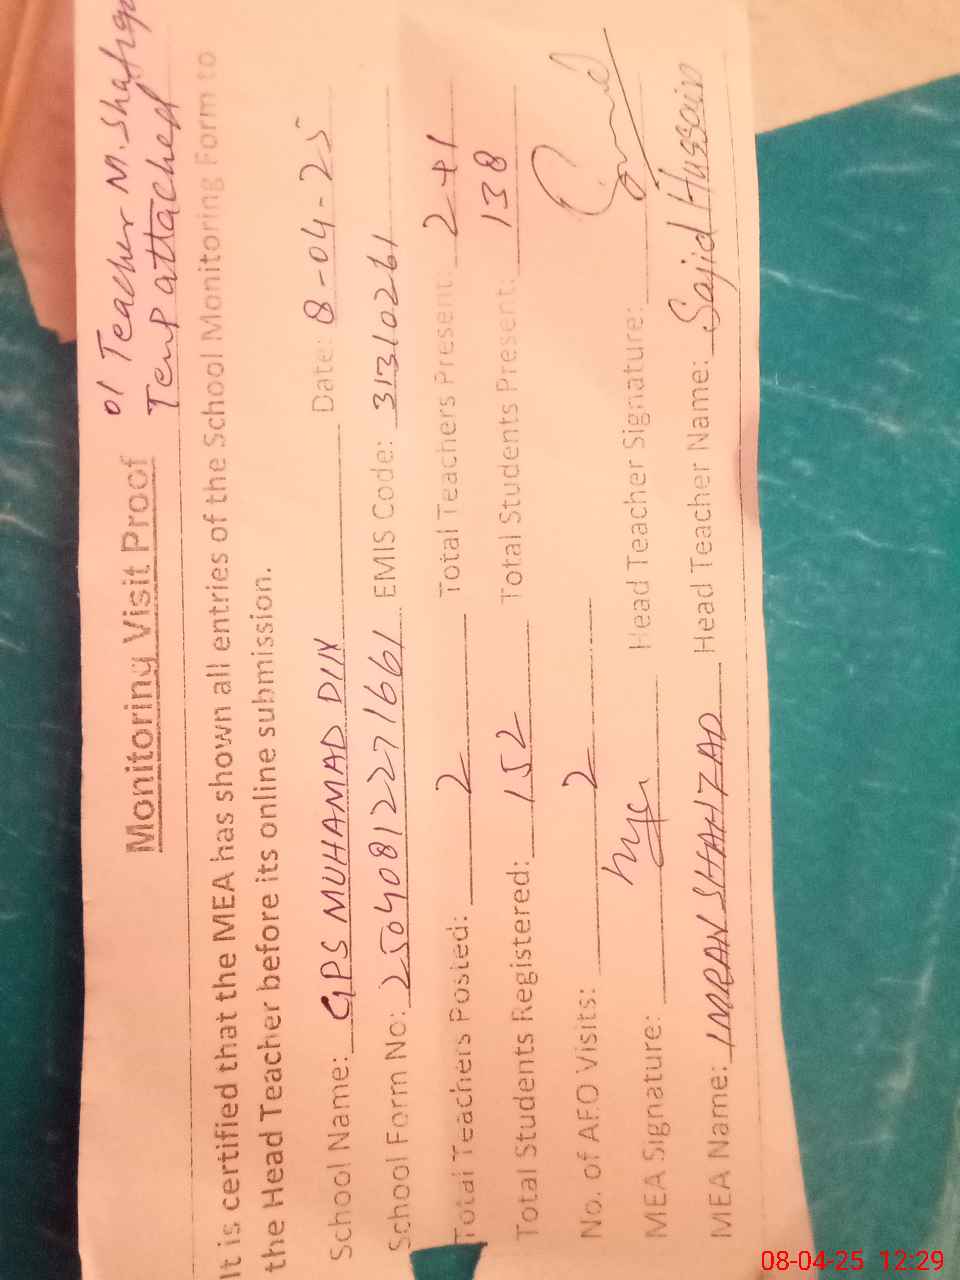 01 Teacher M. Shafiq
Monitoring Visit Proof Temp attached
It is certified that the MEA has shown all entries of the School Monitoring Form to
the Head Teacher before its online submission.
School Name: GPS MUHAMAD DIN Date: 8-04-25
School Form No: 25040812271661 EMIS Code: 31310261
Total Teachers Posted: 2 Total Teachers Present: 2+1
Total Students Registered: 152 Total Students Present: 138
No. of AEO Visits: 2
MEA Signature: Head Teacher Signature:
MEA Name: IMRAN SHAHZAD Head Teacher Name: Sajid Hussain
08-04-25 12:29